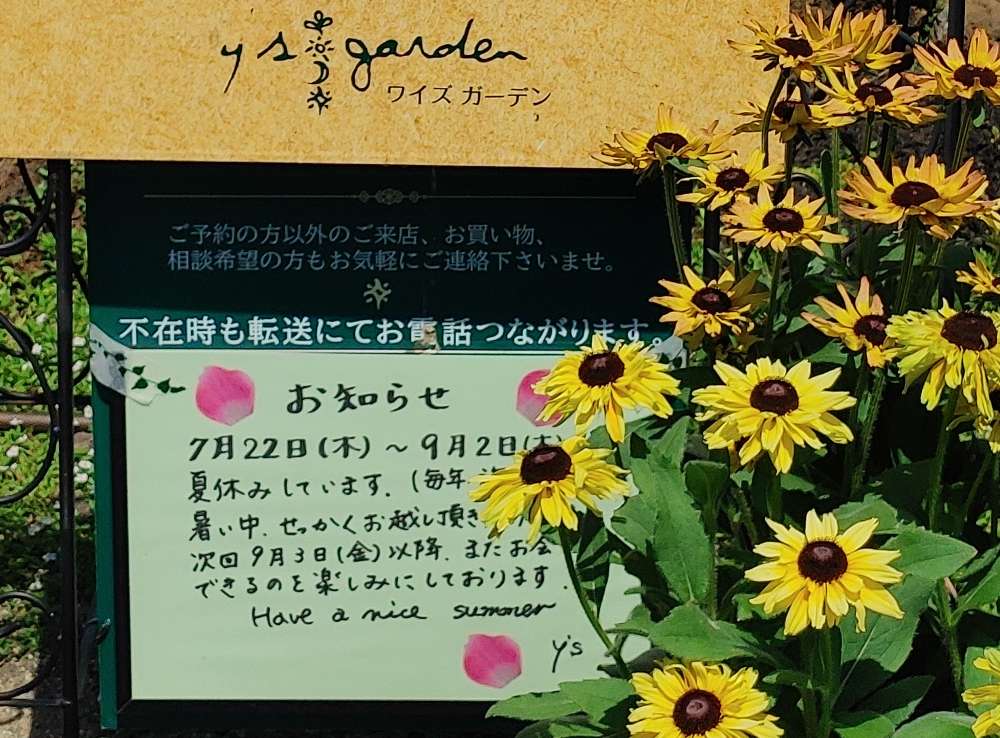 y's garden
ワイズ ガーデン
ご予約の方以外のご来店、お買い物、
相談希望の方もお気軽にご連絡下さいませ。
不在時も転送にてお電話つながります。
お知らせ
7月22日(木)~9月2日(木
夏休みしています.(毎年
暑い中.せっかくお越し頂き
次回9月3日(金)以降.またお会
できるのを楽しみにしております.
Have a nice summer
y's